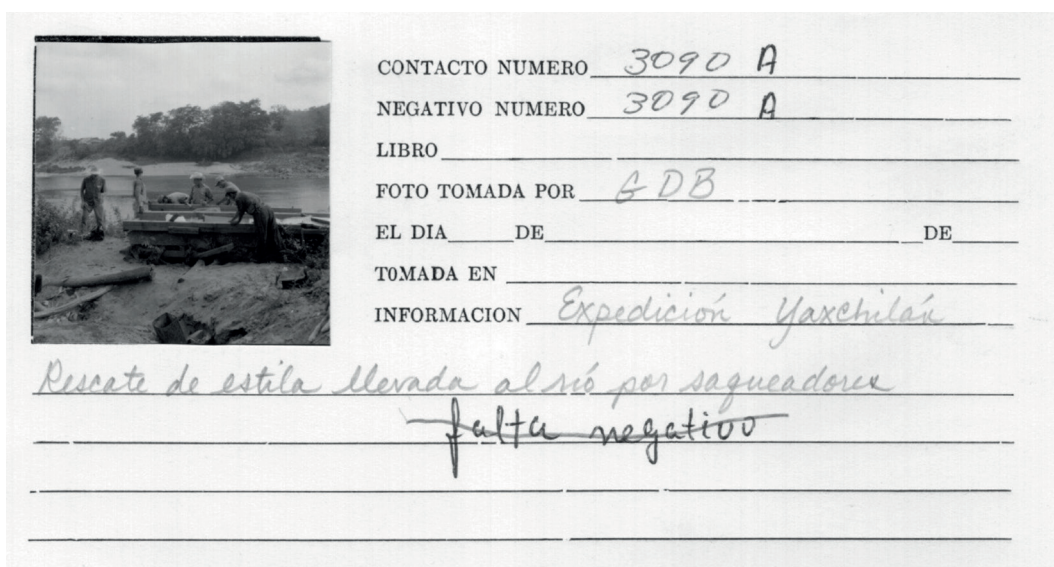 CONTACTO NUMERO 3090 A
NEGATIVO NUMERO 3090 A
LIBRO
FOTO TOMADA POR GDB
EL DIA DE DE
TOMADA EN
INFORMACION Expedición Yaxchilán
Rescate de estila llevada al rió por saqueadores
falta negativo